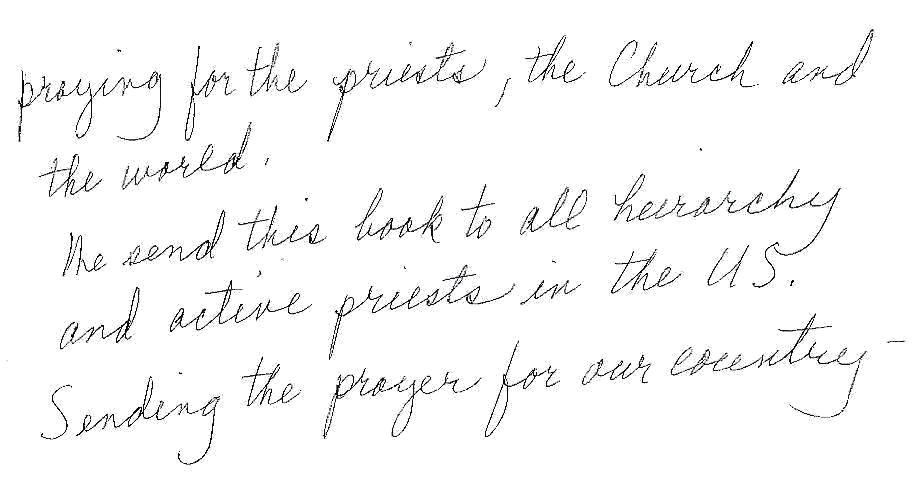 praying for the priests, the Church and
the world.
We send this book to all heirarchy
and active priests in the US.
Sending the prayer for our country -